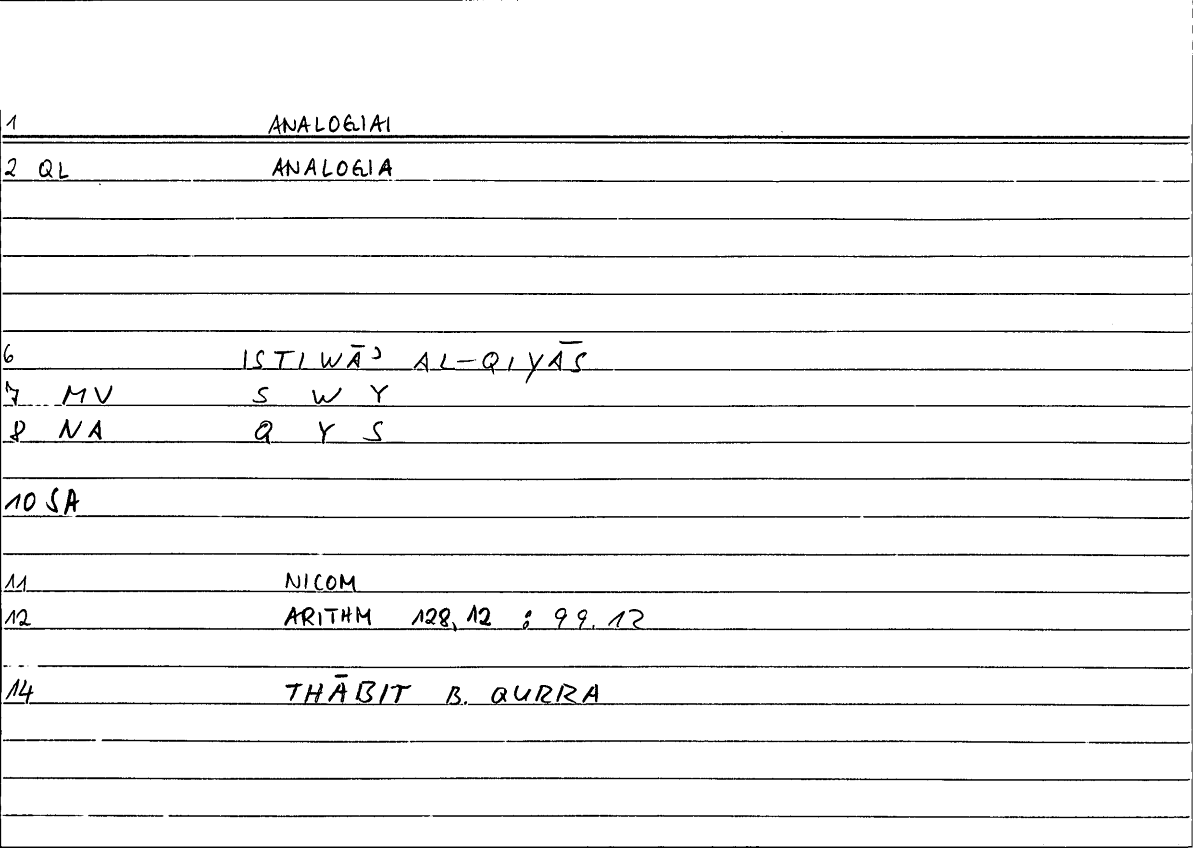 1 ANALOGIAI
2 QL ANALOGIA
6 ISTIWĀʾ AL-QIYĀS
7 MV S W Y
8 NA Q Y S
10 SA
11 NICOM
12 ARITHM 128,12 : 99.12
14 THĀBIT B. QURRA